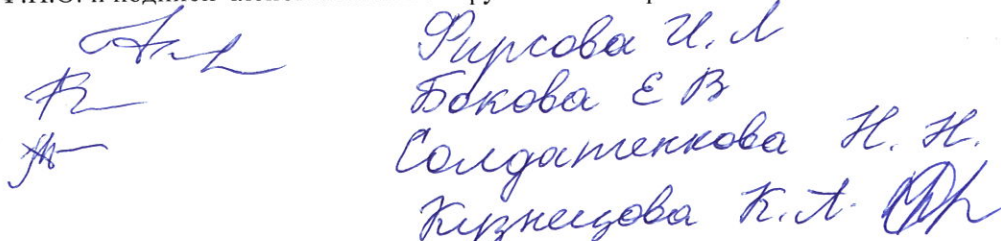 Фирсова И. Л
Бокова Е В
Солдатенкова Н. Н.
Кузнецова К. А.